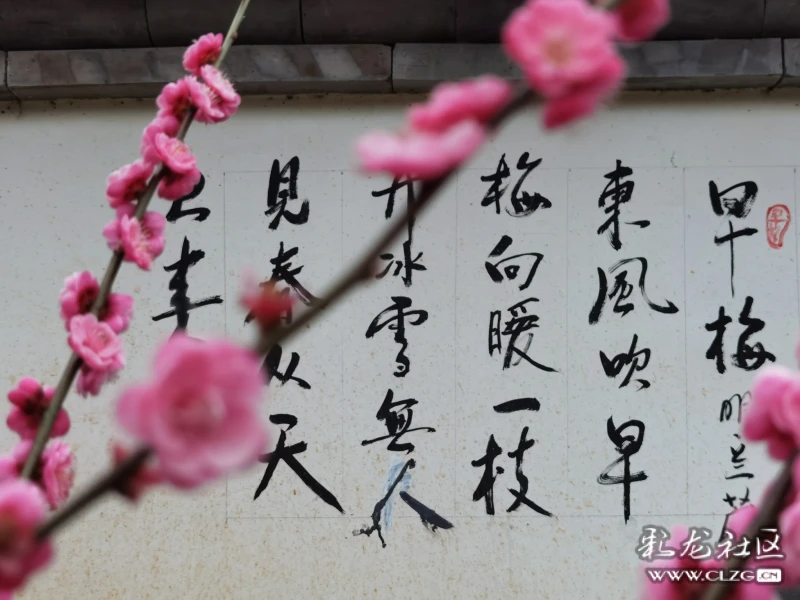 早梅 明兰
東風吹早
梅向暖一枝
开冰雪無人
見春从天
上来
彩龙社区
WWW.CLZG.CN